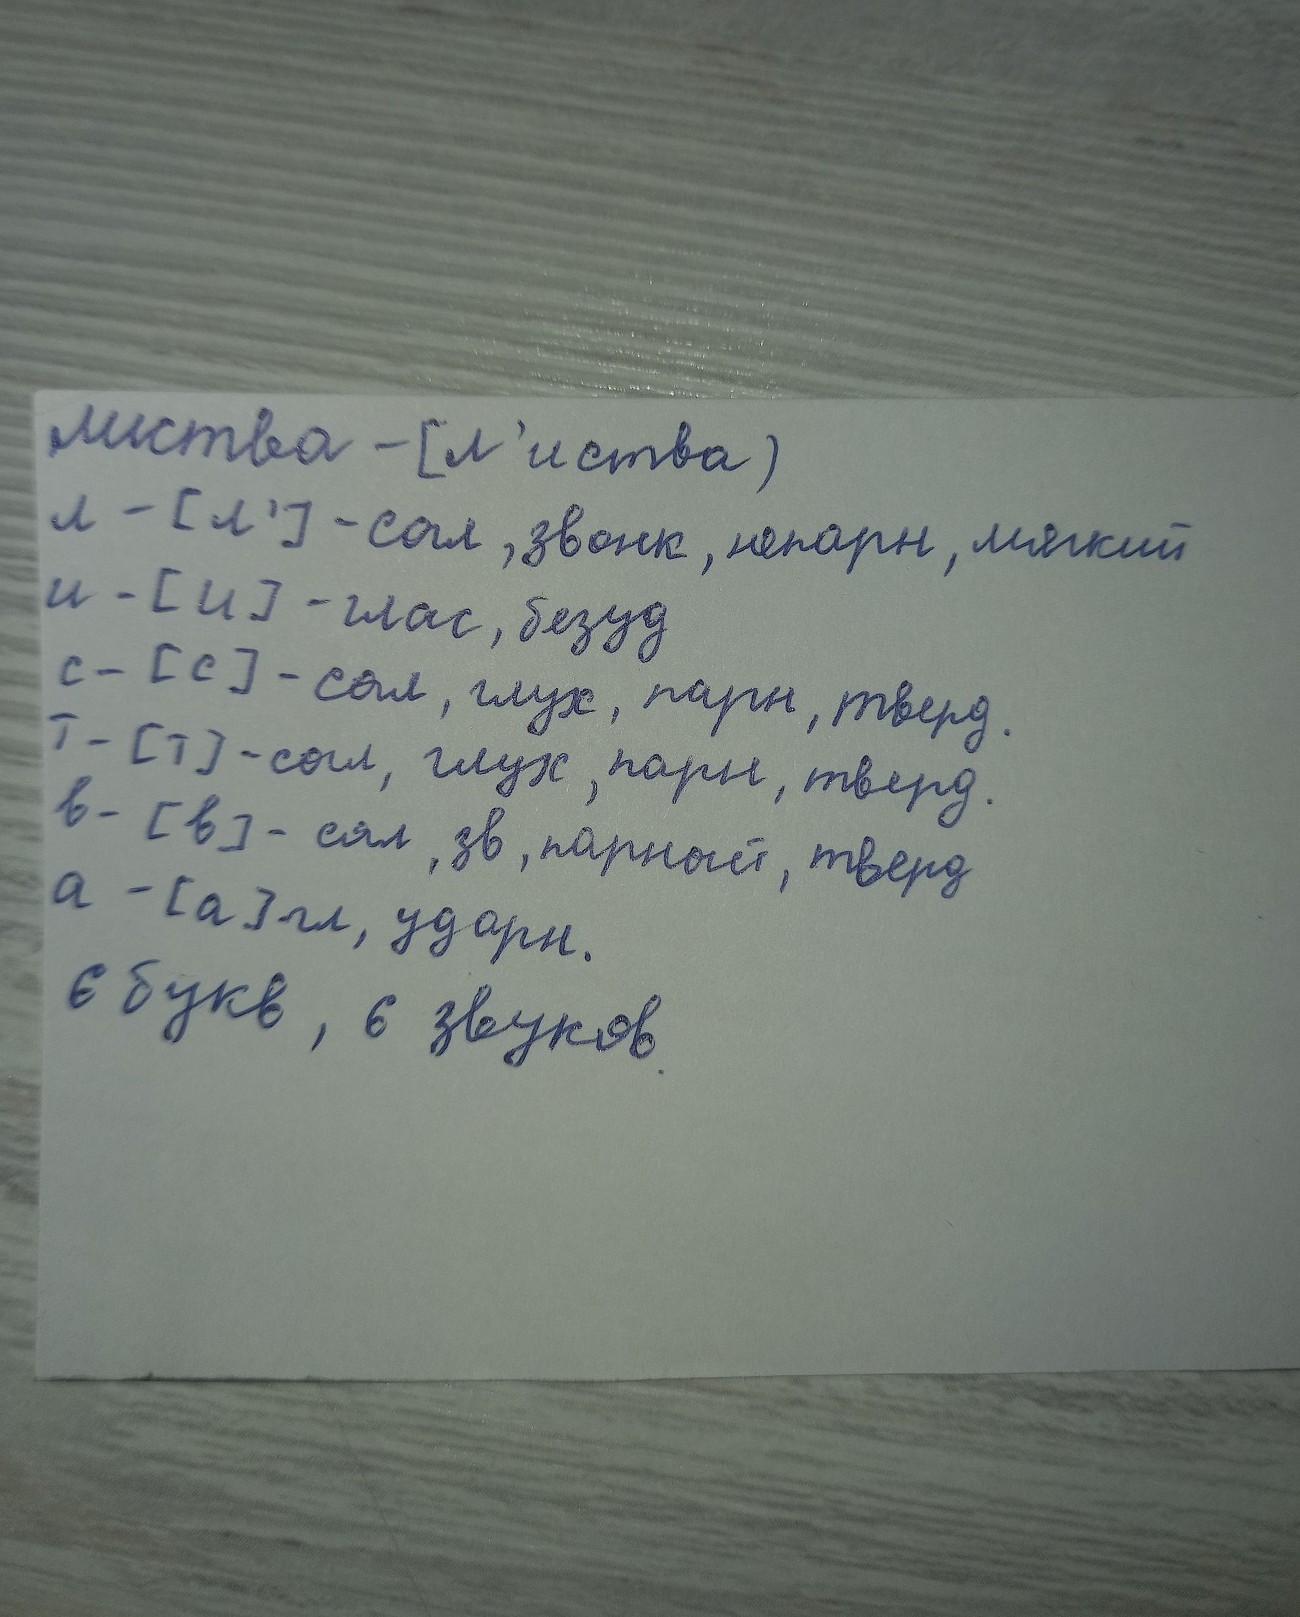 листва - [л'иства)
л - [л'] - согл, звонк, непарн, мягкий
и - [и] - глас, безуд
с - [с] - согл, глух, парн, тверд.
т - [т] - согл, глух, парн, тверд.
в - [в] - согл, зв, парный, тверд
а - [а] - гл, ударн.
6 букв, 6 звуков.